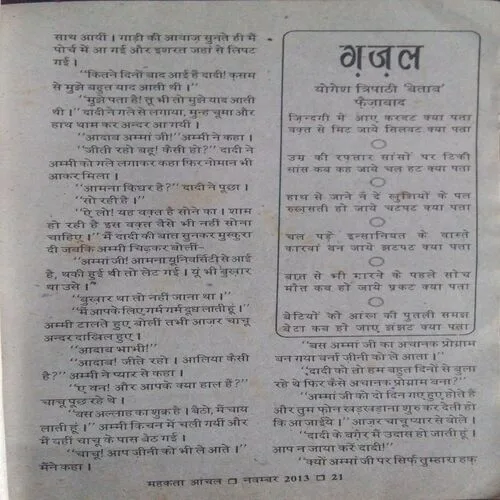 साथ आयीं । गाड़ी की आवाज़ सुनते ही मैं
पोर्च में आ गई और इशरत जहां से लिपट
गई ।
“कितने दिनों बाद आई हैं दादी! क़सम
से मुझे बहुत याद आती थी ।”
“मुझे पता है! तू भी तो मुझे याद आती
थी ।” दादी ने गले से लगाया, मुन्ह चूमा और
हाथ थाम कर अन्दर आ गयीं ।
“आदाब अम्मां जी!” अम्मी ने कहा ।
“जीती रहो बहू! कैसी हो?” दादी ने
अम्मी को गले लगाकर कहा फिर नोमान भी
आकर मिला ।
“आमना किधर है?” दादी ने पूछा ।
“सो रही है ।”
“ऐ लो! यह वक़्त है सोने का । शाम
हो रही है इस वक़्त वैसे भी नहीं सोना
चाहिए ।” मैं दादी की बात सुनकर मुस्कुरा
दी जबकि अम्मी चिढ़कर बोलीं–
“अम्मां जी! आमना यूनिवर्सिटी से आई
है, थकी हुई थी तो लेट गई । यूं भी बुख़ार
था उसे ।”
“बुख़ार था तो नहीं जाना था ।”
“मैं आपके लिए गर्म गर्म दूध लाती हूं ।”
अम्मी टालते हुए बोलीं तभी आजर चाचू
अन्दर दाखिल हुए ।
“आदाब भाभी!”
“आदाब! जीते रहो । आलिया कैसी
है?” अम्मी ने प्यार से कहा ।
“ए वन! और आपके क्या हाल हैं?”
चाचू पूछ रहे थे ।
“बस अल्लाह का शुक्र है । बैठो, मैं चाय
लाती हूं ।” अम्मी किचन में चली गयीं और
मैं यहीं चाचू के पास बैठ गई ।
“चाचू! आप ज़ीनी को भी ले आते ।”
मैंने कहा ।
ग़ज़ल
योगेश त्रिपाठी 'बेताब'
फ़ैज़ाबाद
ज़िन्दगी में आए करवट क्या पता
वक़्त से मिट जाये सिलवट क्या पता
उम्र की रफ्तार सांसों पर टिकी
सांस कब कह जाये चल हट क्या पता
हाथ से जाने न दे खुशियों के पल
रुख़सती हो जाये चटपट क्या पता
चल पड़े इन्सानियत के वास्ते
कारवां बन जाये झटपट क्या पता
बात से भी मारने के पहले सोच
मौत कब हो जाये प्रकट क्या पता
बेटियों को आंख की पुतली समझ
बेटा कब हो जाए झंझट क्या पता
“बस अम्मां जी का अचानक प्रोग्राम
बन गया वर्ना ज़ीनी को ले आता ।”
“दादी को तो हम बहुत दिनों से बुला
रहे थे फिर कैसे अचानक प्रोग्राम बना?”
“अम्मां जी को दो दिन गए हुए होते हैं
और तुम फोन खड़खड़ाना शुरू कर देती हो
कि आ जाईये ।” आजर चाचू प्यार से बोले ।
“दादी के बग़ैर मैं उदास हो जाती हूं ।
आप न जाया करें दादी!”
“क्यों अम्मां जी पर सिर्फ़ तुम्हारा हक़
महकता आंचल □ नवम्बर 2013 □ 21